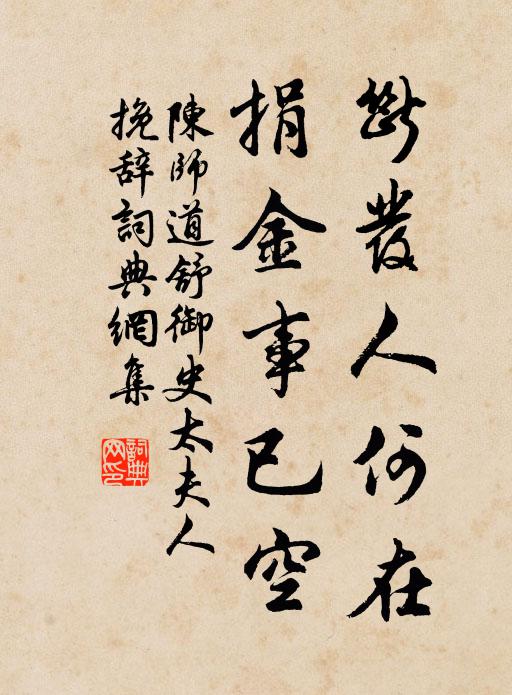 斷發人何在
捐金事已空
陳師道舒御史太夫人
挽辞詞典網集
詞典
网印